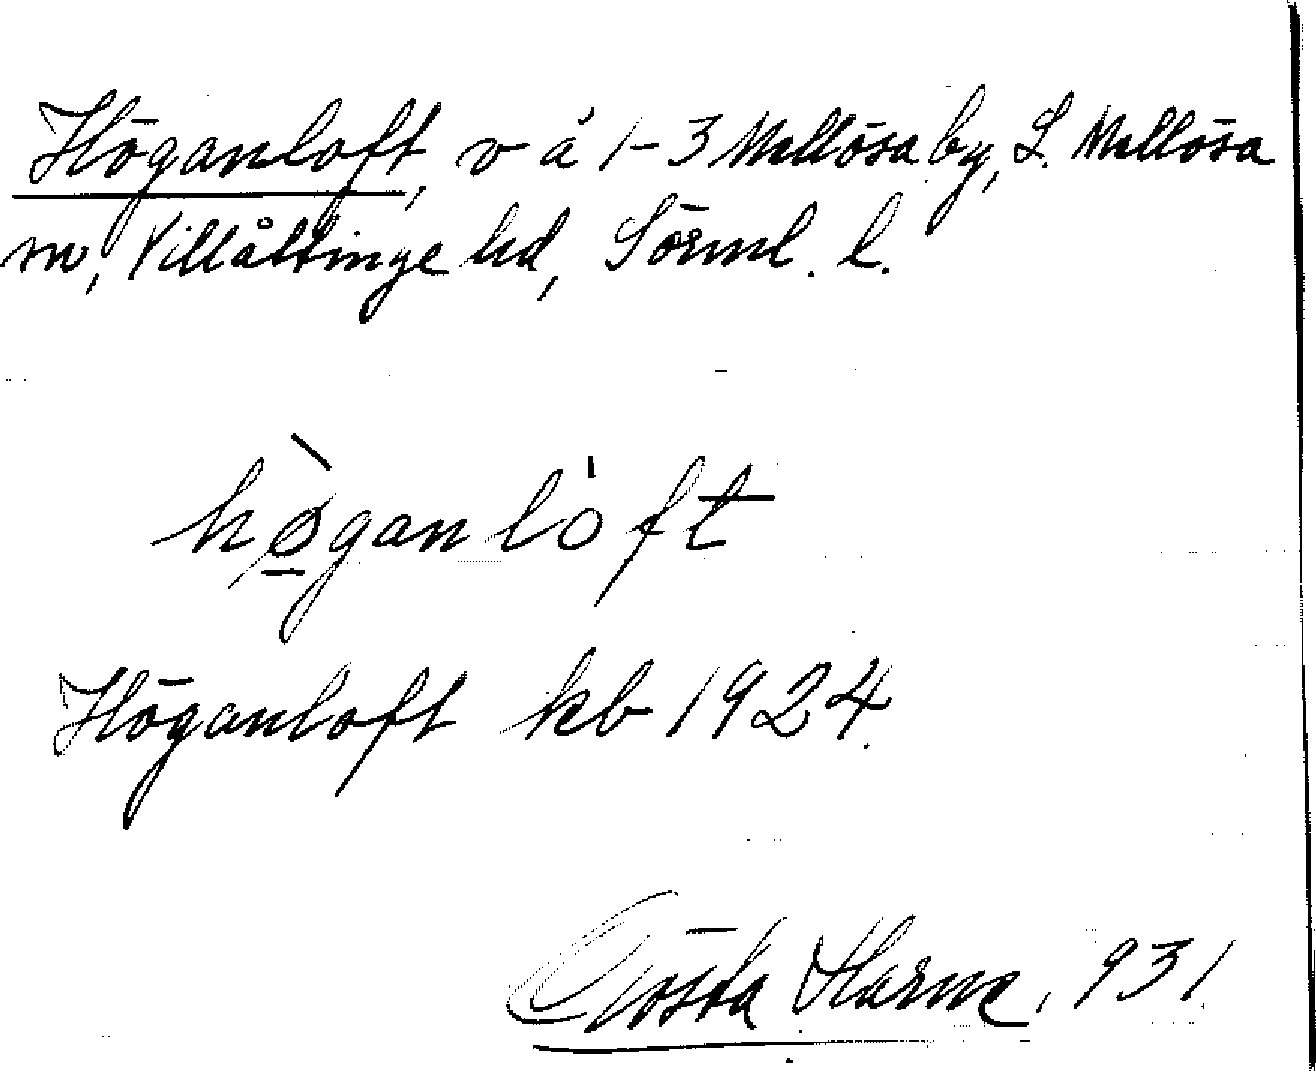 Höganloft, v å 1-3 Mellösa by, L. Mellösa
sn, Villåttinge hd, Sörml. l.
hø̀ganlòft
Höganloft kb 1924.
Gösta Harme, 931